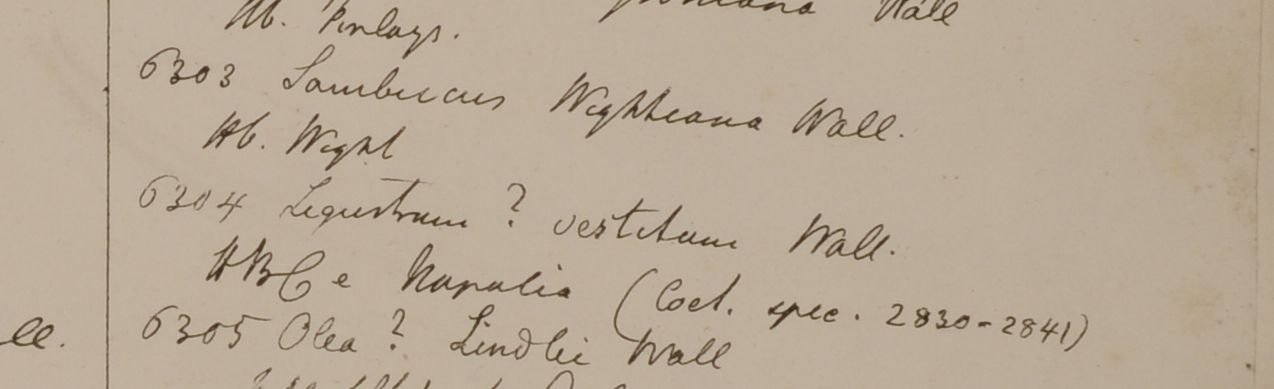 Wall
Hb. Finlays.
6303 Sambucus Wightiana Wall.
Hb. Wight
6304 Ligustrum ? vestitum Wall.
HBC e Napalia (Coet. spec. 2830-2841)
ll. 6305 Olea ? Lindlei Wall